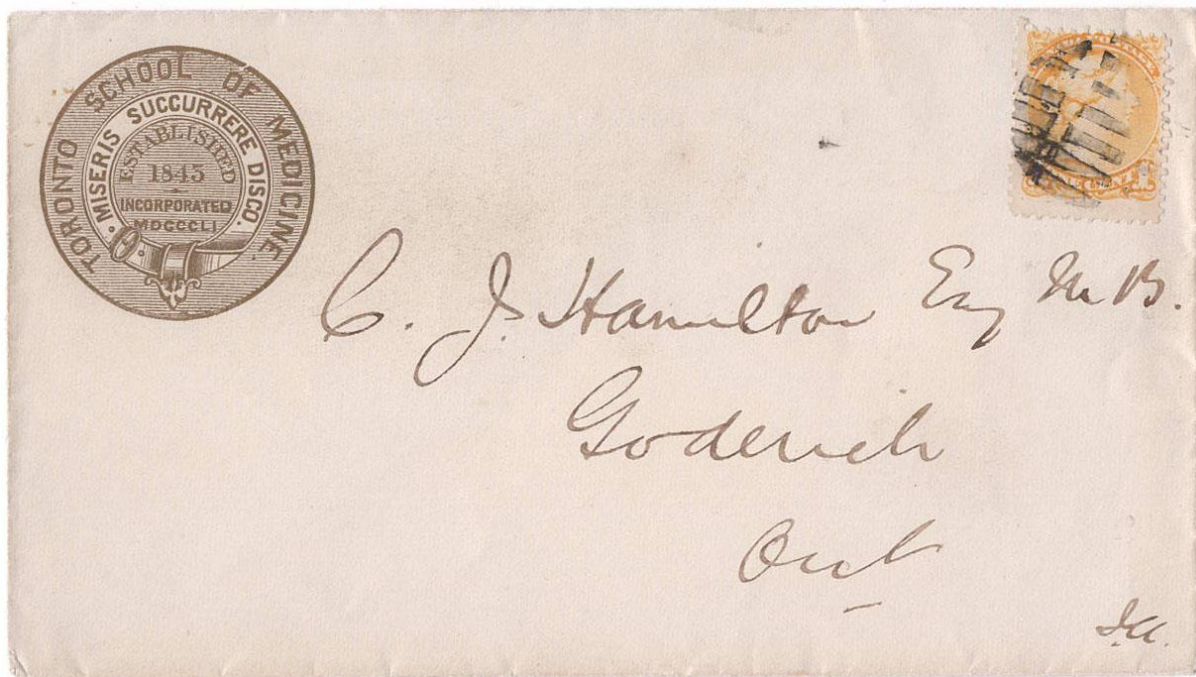 TORONTO SCHOOL OF MEDICINE.
MISERIS SUCCURRERE DISCO.
ESTABLISHED
1843
INCORPORATED
MDCCCLI
C. J. Hamilton Esq M.B.
Goderich
Ont